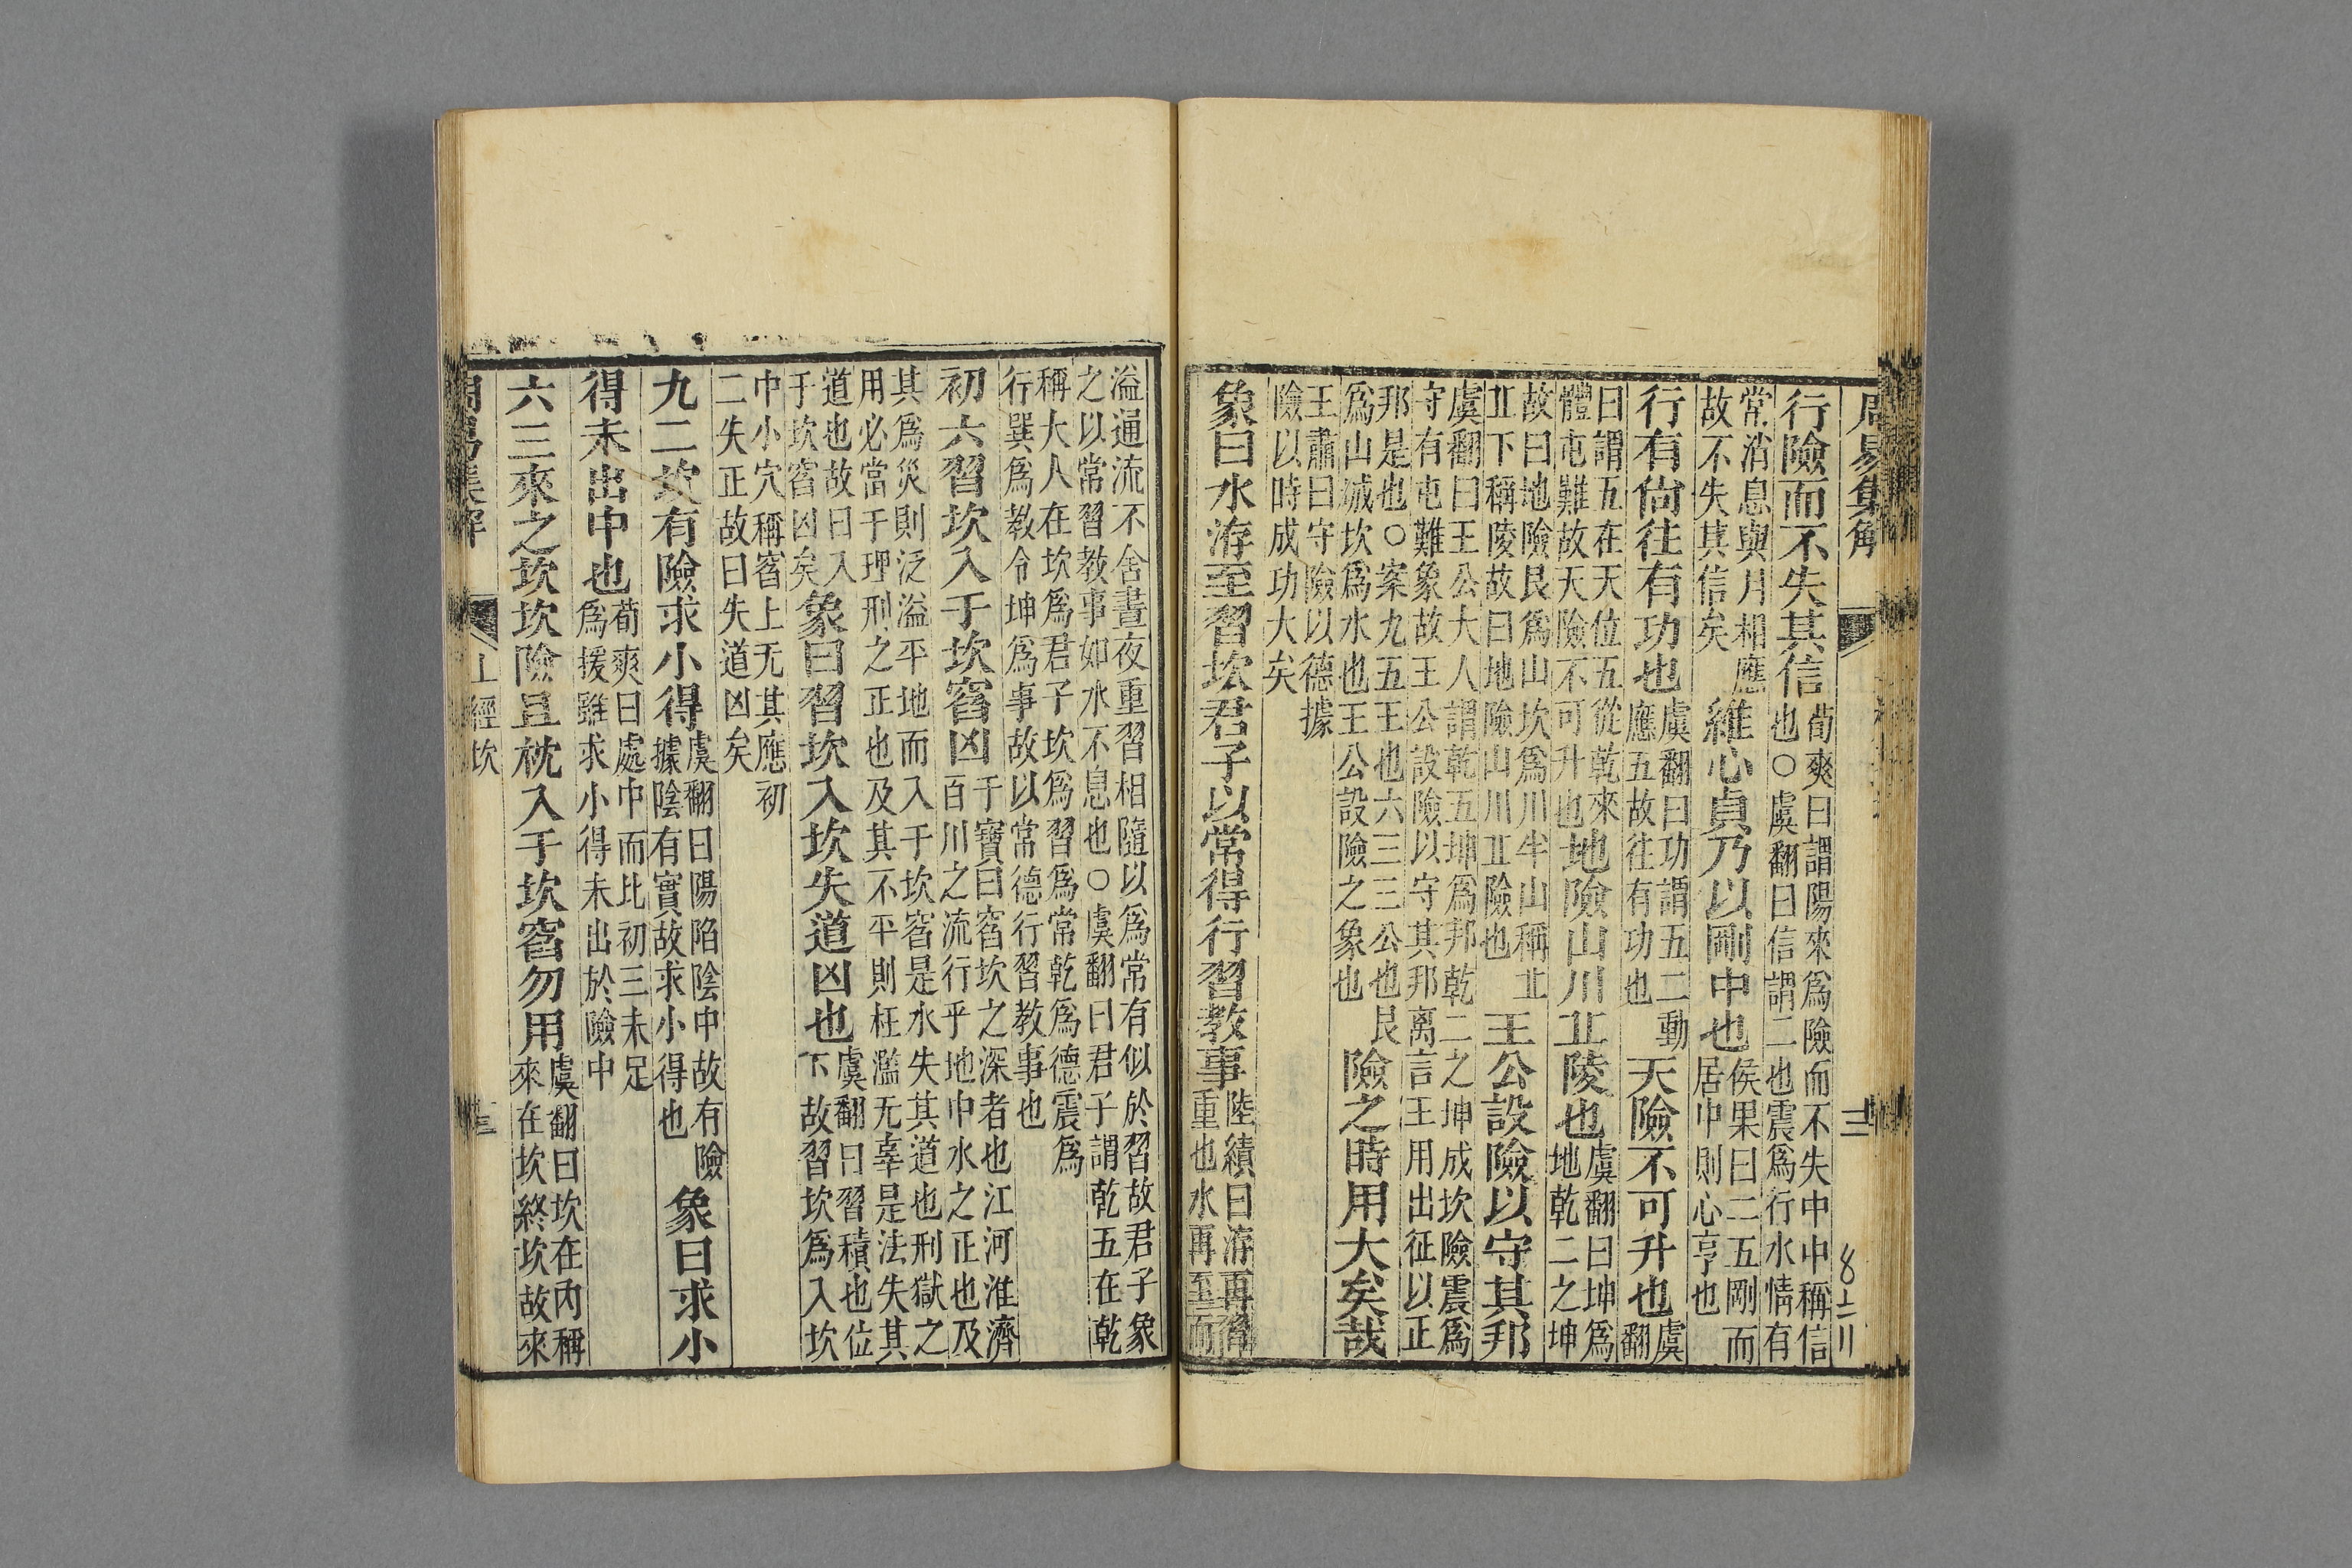 周易集解
三
行險而不失其信荀爽曰謂陽來爲險而不失中中稱信
也○虞翻曰信謂二也震爲行水情有
常消息與月相應
故不失其信矣
維心貞乃以剛中也侯果曰二五剛而
居中則心亨也
行有尙往有功也虞翻曰功謂五二動
應五故往有功也
天險不可升也虞
翻
曰謂五在天位五從乾來
體屯難故天險不可升也
地險山川丠陵也虞翻曰坤爲
地乾二之坤
故曰地險艮爲山坎爲川半山稱丠
丠下稱陵故曰地險山川丠險也
王公設險以守其邦
虞翻曰王公大人謂乾五坤爲邦乾二之坤成坎險震爲
守有屯難象故王公設險以守其邦离言王用出征以正
邦是也○案九五王也六三三公也艮
爲山城坎爲水也王公設險之象也
險之時用大矣哉
王肅曰守險以德據
險以時成功大矣
象曰水洊至習坎君子以常得行習教事陸績曰洊再習
重也水再至而
溢通流不舍晝夜重習相隨以爲常有似於習故君子象
之以常習教事如水不息也○虞翻曰君子謂乾五在乾
稱大人在坎爲君子坎爲習爲常乾爲德震爲
行巽爲教令坤爲事故以常德行習教事也
初六習坎入于坎窞凶干寶曰窞坎之深者也江河淮濟
百川之流行乎地中水之正也及
其爲災則泛溢平地而入于坎窞是水失其道也刑獄之
用必當于理刑之正也及其不平則枉濫无辜是法失其
道也故曰入
于坎窞凶矣
象曰習坎入坎失道凶也虞翻曰習積也位
下故習坎爲入坎
中小穴稱窞上无其應初
二失正故曰失道凶矣
九二坎有險求小得虞翻曰陽陷陰中故有險
據陰有實故求小得也
象曰求小
得未出中也荀爽曰處中而比初三未足
爲援雖求小得未出於險中
六三來之坎坎險且枕入于坎窞勿用虞翻曰坎在內稱
來在坎終坎故來
周易集解
上經坎
三